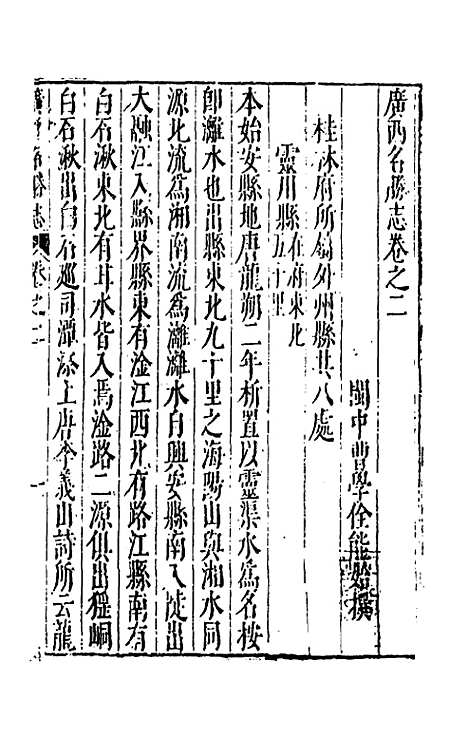 廣西名勝志卷之二
閩中曹學佺能始撰
桂林府所屬外州縣共八處
靈川縣在府東北五十里
本始安縣地唐龍朔二年析置以靈渠水爲名桉
卽灕水也出縣東北九十里之海陽山與湘水同
源北流爲湘南流爲灕灕水自興安縣南入徒出
大融江入縣界縣東有淦江西北有路江縣南有
白石湫東北有玨水皆入焉淦路二源俱出猺峒
白石湫出白石巡司潭深上唐李義山詩所云龍
廣西名勝志 卷之二 一